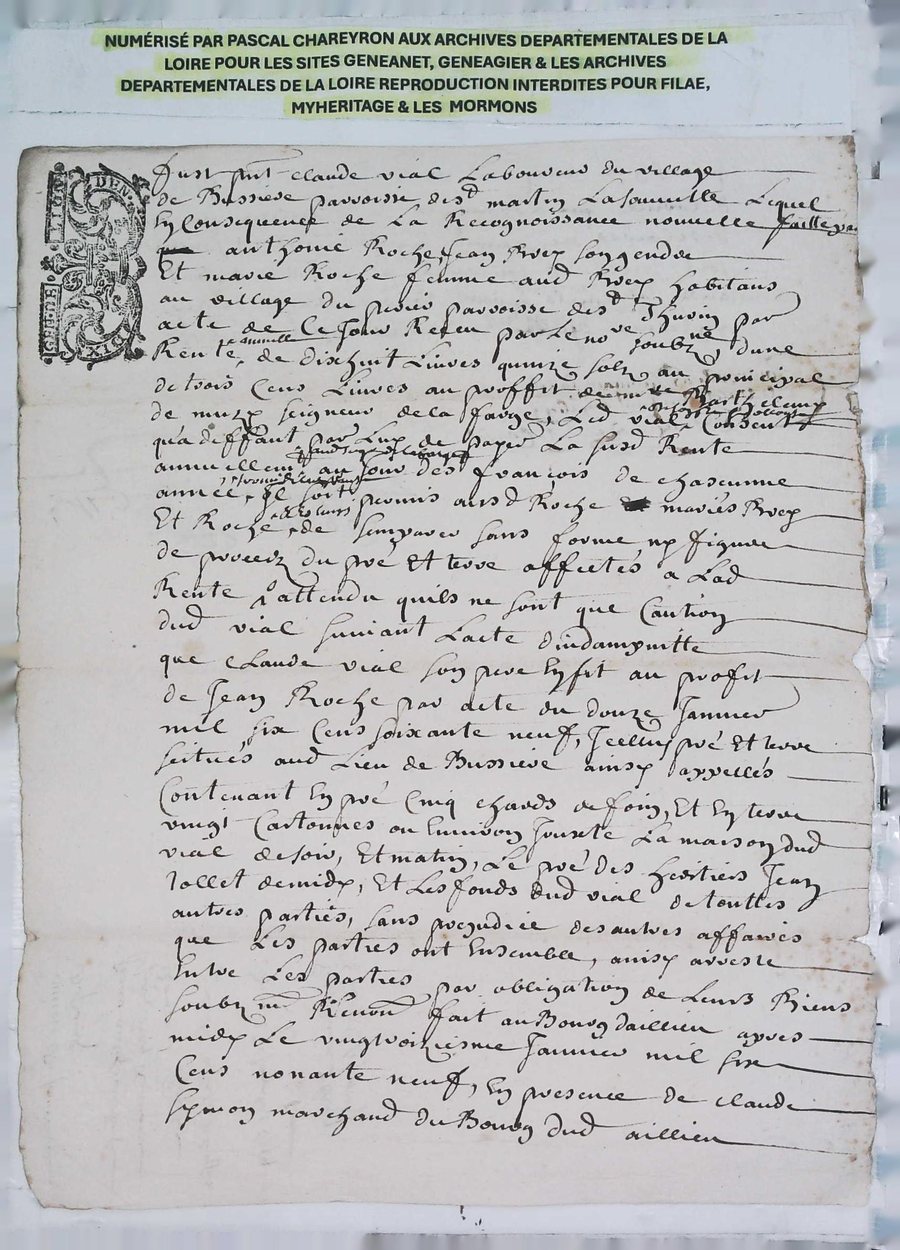 NUMÉRISÉ PAR PASCAL CHAREYRON AUX ARCHIVES DEPARTEMENTALES DE LA
LOIRE POUR LES SITES GENEANET, GENEAGIER & LES ARCHIVES
DEPARTEMENTALES DE LA LOIRE REPRODUCTION INTERDITES POUR FILAE,
MYHERITAGE & LES MORMONS
claude vial Laboureur du village
de Bussiere parroisse de sd martin Lasauvette Lequel
En Consequence de La Recognoissance nouvelle faitte par
anthoine Roche Jean son gendre
Et marie Roche femme aud habitans
au village du parroisse de sd Thurin par
acte de Ce Jour Receu par Le nore soubzne dune
Rente annuelle de dixhuit Livres quinze solz au principal
de trois Cens Livres au proffit de
de seigneur de la farge, Led vial Consent
qua deffaut par Luy de payer La susd Rente
annuellemt au Jour des françois de chascunne
année, Il soit permis ausd Roche mariés
Et Roche de semparer sans forme ny figure
de procez du pré Et terre affectés a Lad
Rente attendu quils ne sont que Caution
dud vial suivant Lacte dindampnitte
que claude vial son pere En fit au profit
de Jean Roche par acte du douze Janvier
mil six Cens soixante neuf, Icelluy pré Et terre
scitués aud Lieu de Bussiere ainsy appellés
Contenant En pré Cinq chards de foin, Et En terre
vingt Cartonnes ou Environ Jouxte La maison dud
vial de soir, Et matin, Le pré des heritiers Jean
de midy, Et Les fonds dud vial de touttes
autres parties, sans prejudice des autres affaires
que Les parties ont Ensemble, ainsy arreste
Entre Les parties par obligation de Leurs Biens
fait au Bourg daillieu apres
midy Le vingtroiziesme Janvier mil six
Cens nonante neuf, En presence de claude
Symon marchand du Bourg dud aillieu